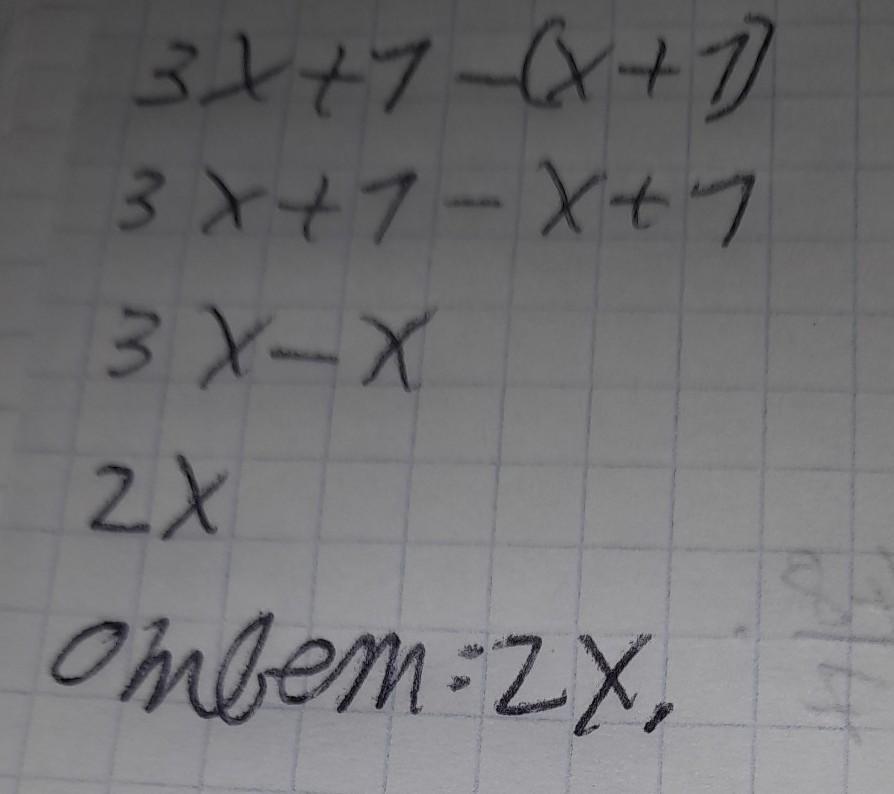 3x+1-(x+1)
3x+1-x+1
3x-x
2x
Ответ: 2x.